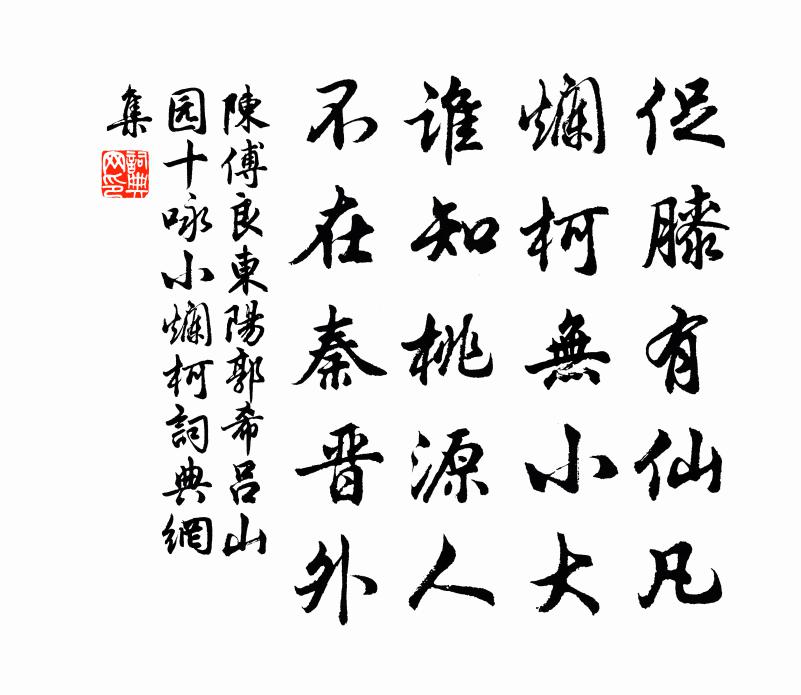 促膝有仙凡
爛柯無小大
誰知桃源人
不在秦晋外
陳傅良東陽郭希吕山
园十咏小爛柯詞典網
集
詞典
网印